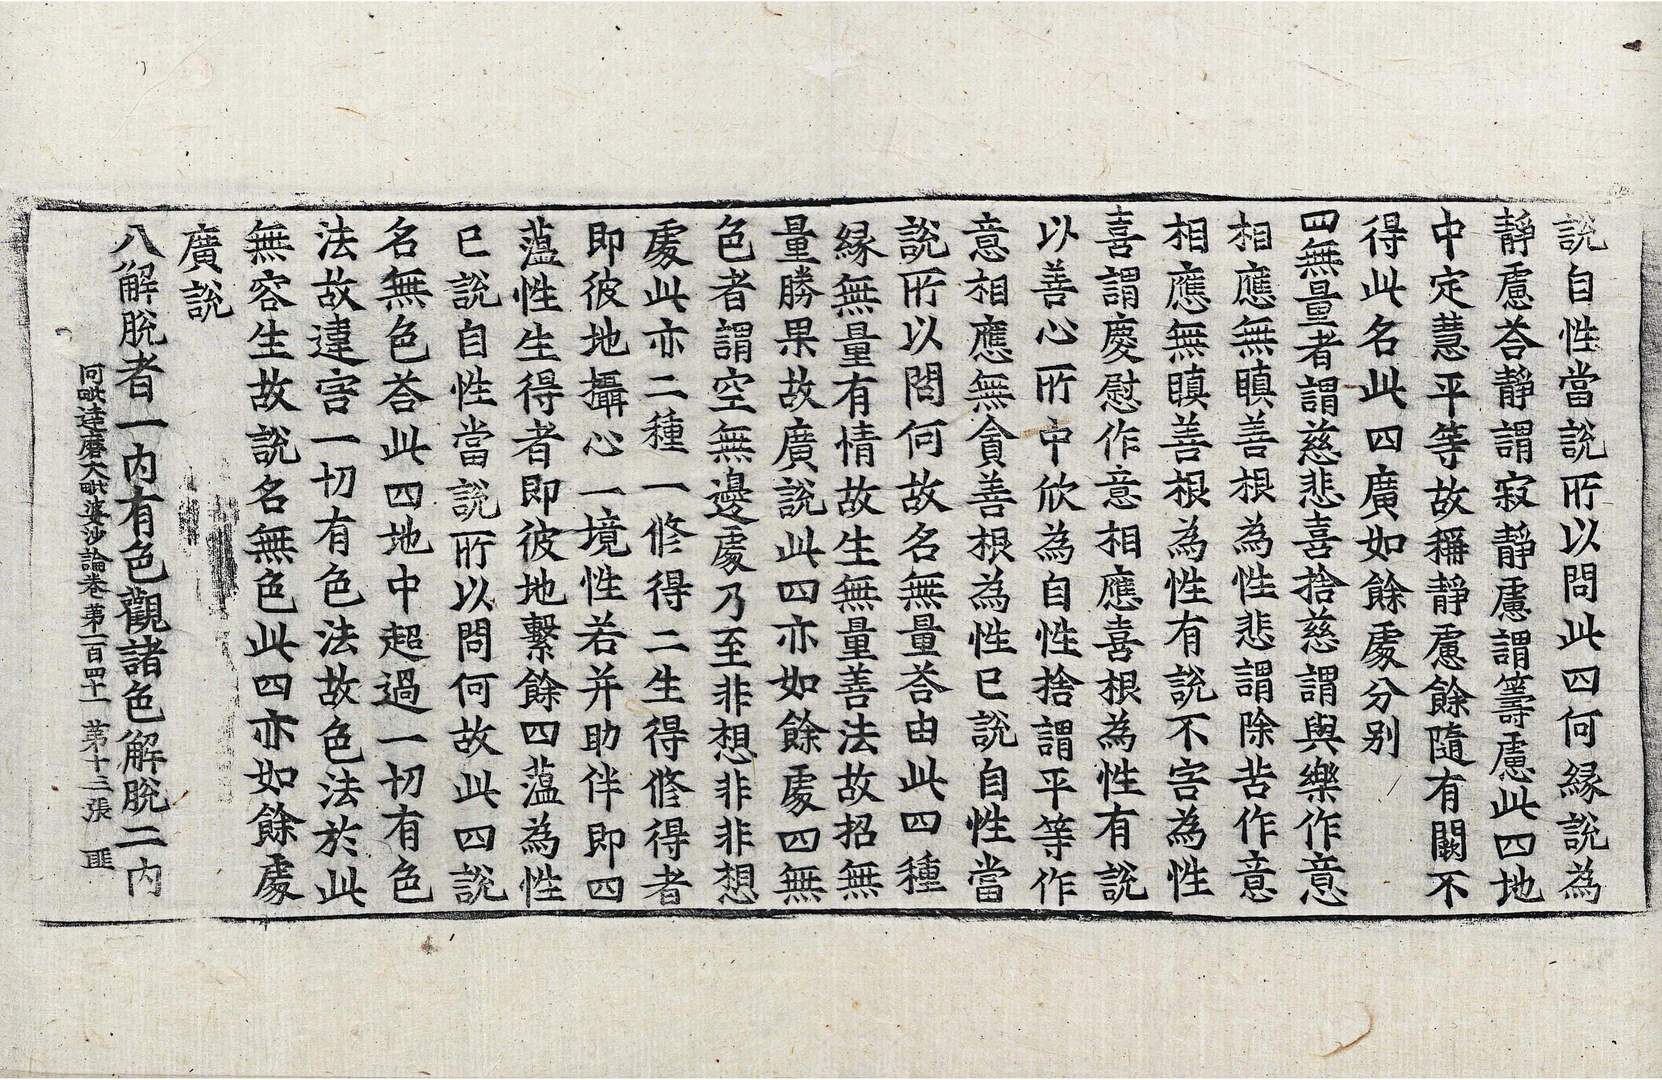 說自性當說所以問此四何縁說為
靜慮荅靜謂寂靜慮謂籌慮此四地
中定慧平等故稱靜慮餘隨有闕不
得此名此四廣如餘處分别
四無量者謂慈悲喜捨慈謂與樂作意
相應無瞋善根為性悲謂除苦作意
相應無瞋善根為性有說不害為性
喜謂慶慰作意相應喜根為性有說
以善心所中欣為自性捨謂平等作
意相應無貪善根為性已說自性當
說所以問何故名無量荅由此四種
縁無量有情故生無量善法故招無
量勝果故廣說此四亦如餘處四無
色者謂空無邊處乃至非想非非想
處此亦二種一修得二生得修得者
即彼地攝心一境性若并助伴即四
薀性生得者即彼地繫餘四薀為性
已說自性當說所以問何故此四說
名無色荅此四地中超過一切有色
法故違害一切有色法故色法於此
無容生故說名無色此四亦如餘處
廣說
八解脫者一內有色觀諸色解脫二內
阿毗達磨大毗婆沙論卷第一百四十一 第十三張 匪